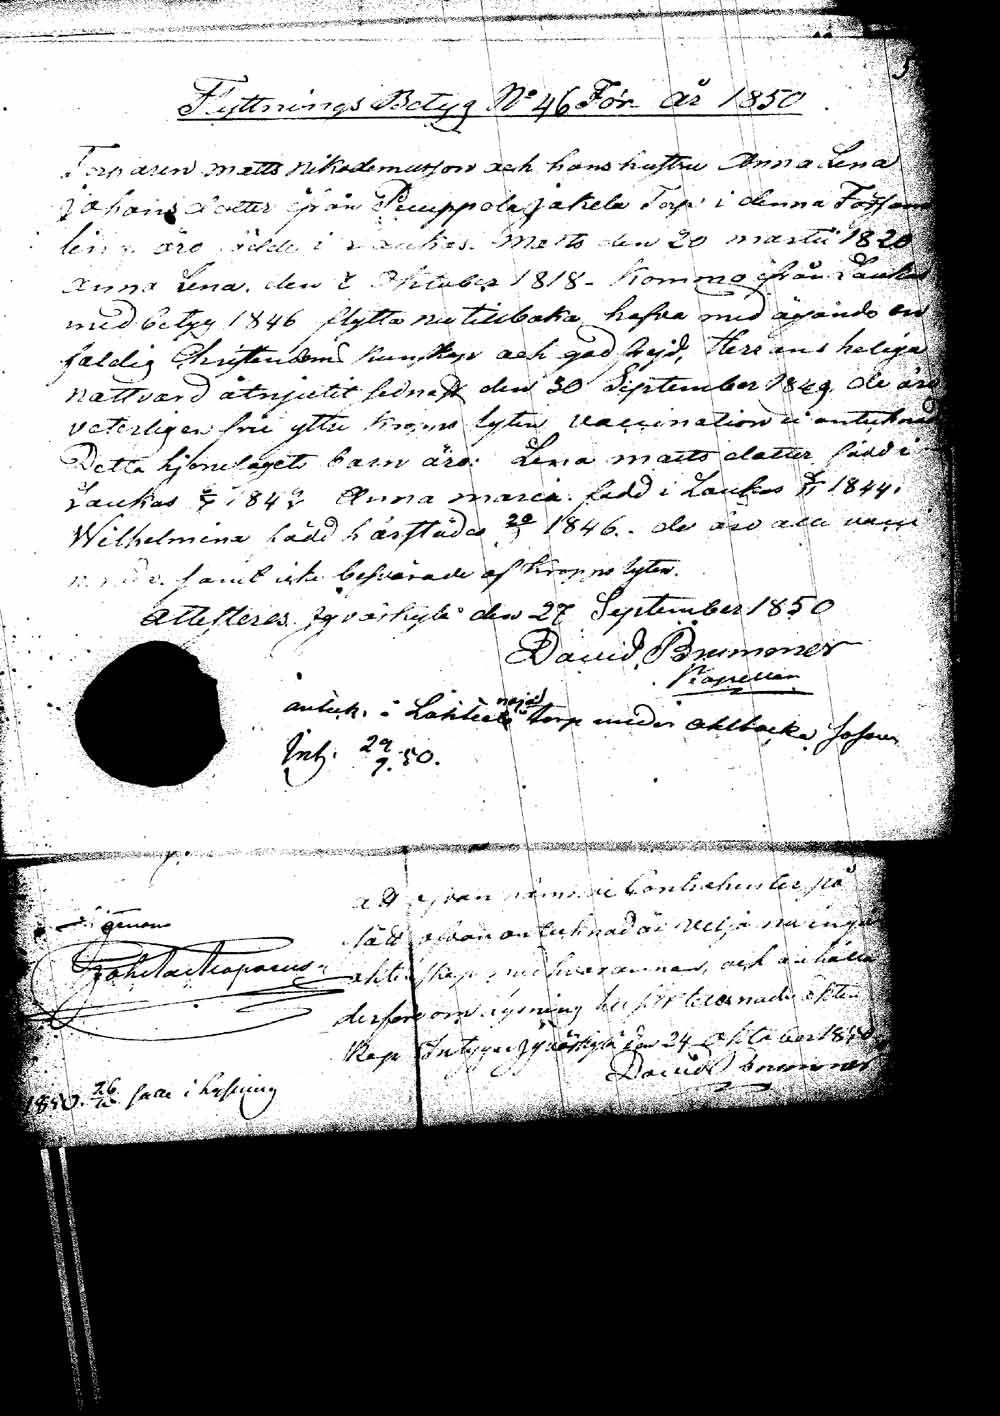 Flyttnings Betyg No 46 För år 1850
Torparen Matts Nikodemusson och hans hustru Anna Lena
Johansdotter ifrån Puuppola Jakela Torp i denna Församm
ling äro födde i Laukas Matts den 20 Martii 1820
Anna Lena den 2 Oktober 1818 - Kommo ifrån Laukas
med betyg 1846 flytta nu tillbaka, hafva med ägande en
faldig Christendoms kunskap och god frejd, Herrans heliga
nattvard åtnjutit sednast den 30 September 1849. de äro
veterligen frie yttre kropps lyten vaccination ei antecknad
Detta hjonelagets barn äro: Lena Matts dotter född i
Laukas 184 Anna Maria född i Laukas 1844.
Wilhelmina född härstädes 20 1846. de äro alla vacci
nerade samt icke besvärade af kropps lyten.
Attesteras Jyväskylä den 27 September 1850
David Brummer
Kapellan
anteck. i nojd torp under Ahlbacka
Inl. 29/9. 50.
att ofvan nämnde Contrahenter på
sätt ofvan antecknad är velja nu ingå
äktenskap med hvarannan, och anhålla
derföre om lysning till för tecknade äkten
skap Intygar Jyväskylä den 24 Oktober 1850
David Brummer
Igenom
1850. 26/10 falle i lysning